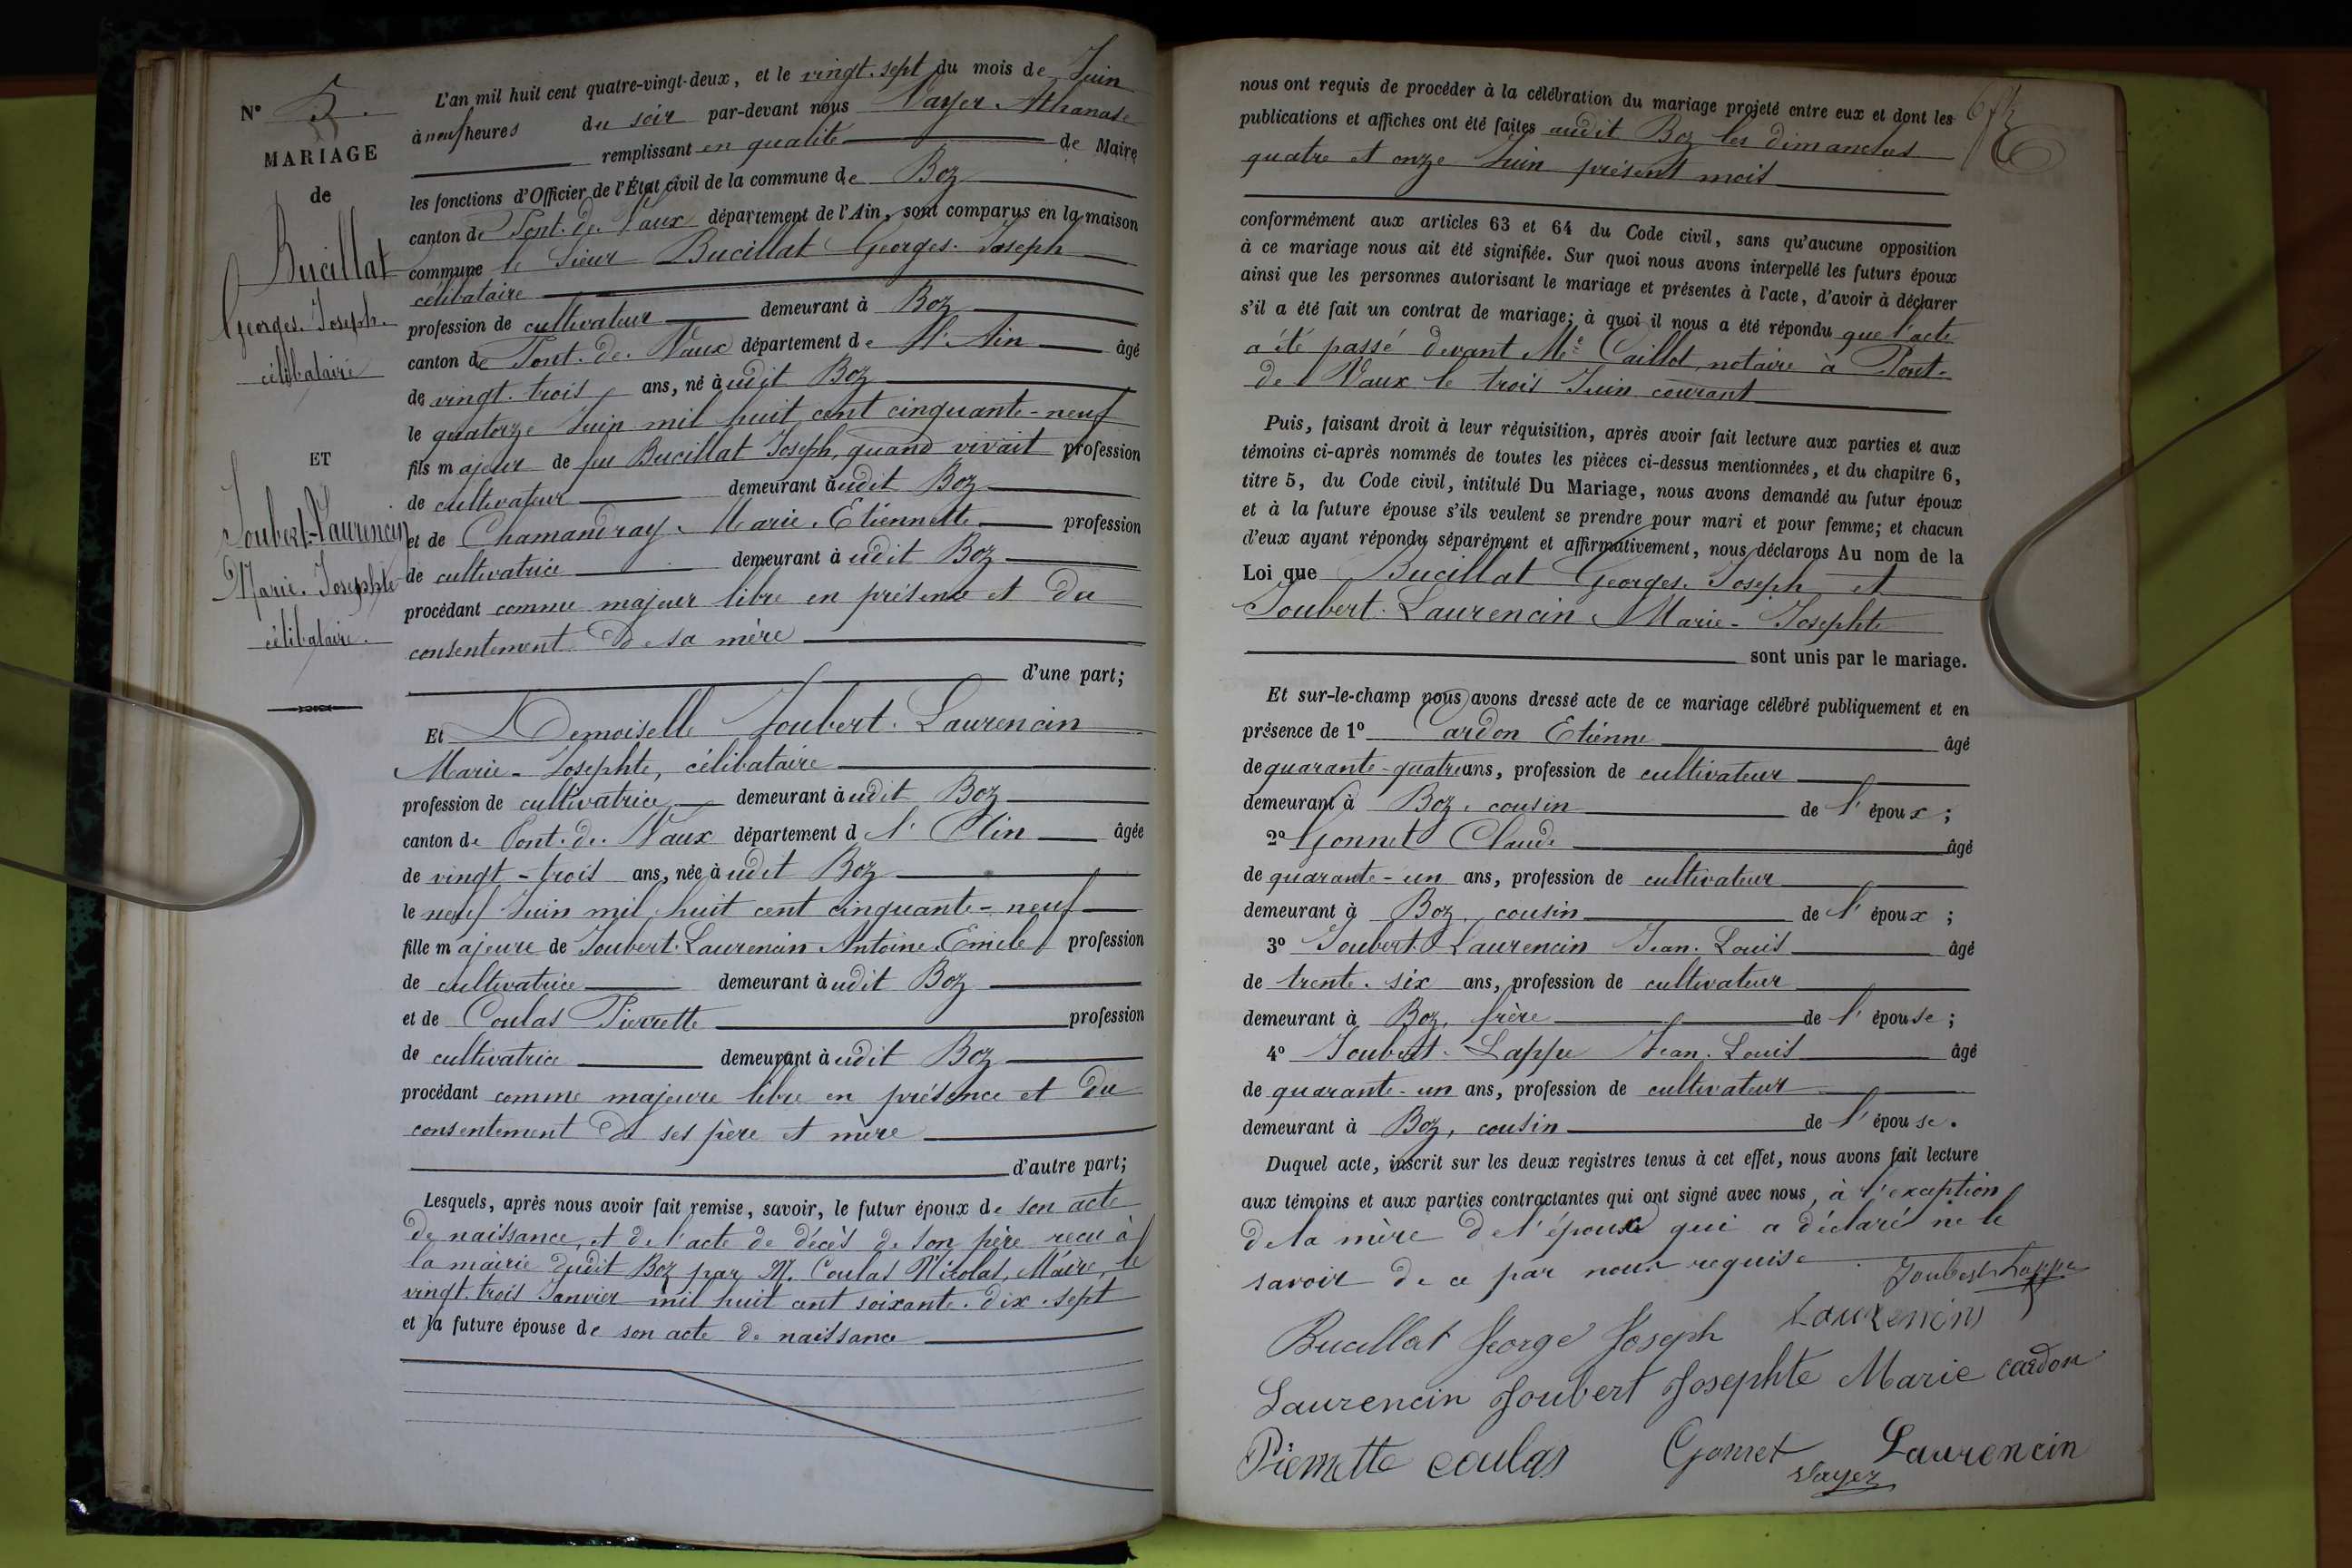 N° 5.
MARIAGE
de
Bucillat
Georges. Joseph.
célibataire
ET
Joubert-Laurencin
Marie. Josephte
célibataire.
L'an mil huit cent quatre-vingt-deux, et le vingt. sept du mois de Juin
à neuf heures du soir par-devant nous Vayer Athanase
remplissant en qualité de Maire
les fonctions d'Officier de l'État civil de la commune de Boz
canton de Pont. de. Vaux département de l'Ain, sont comparus en la maison
commune le Sieur Bucillat Georges. Joseph
célibataire
profession de cultivateur demeurant à Boz
canton de Pont. de. Vaux département de l'Ain âgé
de vingt. trois ans, né audit Boz
le quatorze Juin mil huit cent cinquante-neuf
fils majeur de feu Bucillat Joseph, quand vivait profession
de cultivateur demeurant audit Boz
et de Chamandray. Marie. Etiennette profession
de cultivatrice demeurant à udit Boz
procédant comme majeur libre en présence et du
consentement de sa mère
d'une part;
Et Demoiselle Joubert. Laurencin
Marie-Josephte, célibataire
profession de cultivatrice demeurant audit Boz
canton de Pont. de. Vaux département d l'Ain âgée
de vingt-trois ans, née à udit Boz
le neuf Juin mil huit cent cinquante-neuf
fille majeure de Joubert. Laurencin Antoine. Emile profession
de cultivatrice demeurant audit Boz
et de Coulas Pierrette profession
de cultivatrice demeurant à udit Boz
procédant comme majeure libre en présence et du
consentement de ses père et mère
d'autre part;
Lesquels, après nous avoir fait remise, savoir, le futur époux de son acte
de naissance, et de l'acte de décès de son père reçu à
la mairie dudit Boz par M. Coulas Nicolas, Maire, le
vingt. trois Janvier mil huit cent soixante. dix. sept
et la future épouse de son acte de naissance
nous ont requis de procéder à la célébration du mariage projeté entre eux et dont les
publications et affiches ont été faites audit Boz les dimanches
quatre et onze Juin présent mois
conformément aux articles 63 et 64 du Code civil, sans qu'aucune opposition
à ce mariage nous ait été signifiée. Sur quoi nous avons interpellé les futurs époux
ainsi que les personnes autorisant le mariage et présentes à l'acte, d'avoir à déclarer
s'il a été fait un contrat de mariage; à quoi il nous a été répondu que l'acte
a été passé devant Me Caillot, notaire à Pont-
de Vaux le trois Juin courant
Puis, faisant droit à leur réquisition, après avoir fait lecture aux parties et aux
témoins ci-après nommés de toutes les pièces ci-dessus mentionnées, et du chapitre 6,
titre 5, du Code civil, intitulé Du Mariage, nous avons demandé au futur époux
et à la future épouse s'ils veulent se prendre pour mari et pour femme; et chacun
d'eux ayant répondu séparément et affirmativement, nous déclarons Au nom de la
Loi que Bucillat Georges. Joseph et
Joubert. Laurencin Marie-Josephte
sont unis par le mariage.
Et sur-le-champ nous avons dressé acte de ce mariage célébré publiquement et en
présence de 1° Cardon Etienne âgé
de quarante-quatre ans, profession de cultivateur
demeurant à Boz, cousin de l'époux;
2° Gonnet Claude âgé
de quarante-un ans, profession de cultivateur
demeurant à Boz, cousin de l'époux;
3° Joubert. Laurencin Jean. Louis âgé
de trente. six ans, profession de cultivateur
demeurant à Boz, frère de l'épouse;
4° Joubert. Lappe Jean. Louis âgé
de quarante-un ans, profession de cultivateur
demeurant à Boz, cousin de l'épouse.
Duquel acte, inscrit sur les deux registres tenus à cet effet, nous avons fait lecture
aux témoins et aux parties contractantes qui ont signé avec nous, à l'exception
de la mère de l'époux qui a déclaré ne le
savoir de ce par nous requise. Joubert Lappe
Bucillat George Joseph Laurencin
Laurencin Joubert Josephte Marie Cardon
Pierrette Coulas Gonnet Laurencin
Vayer